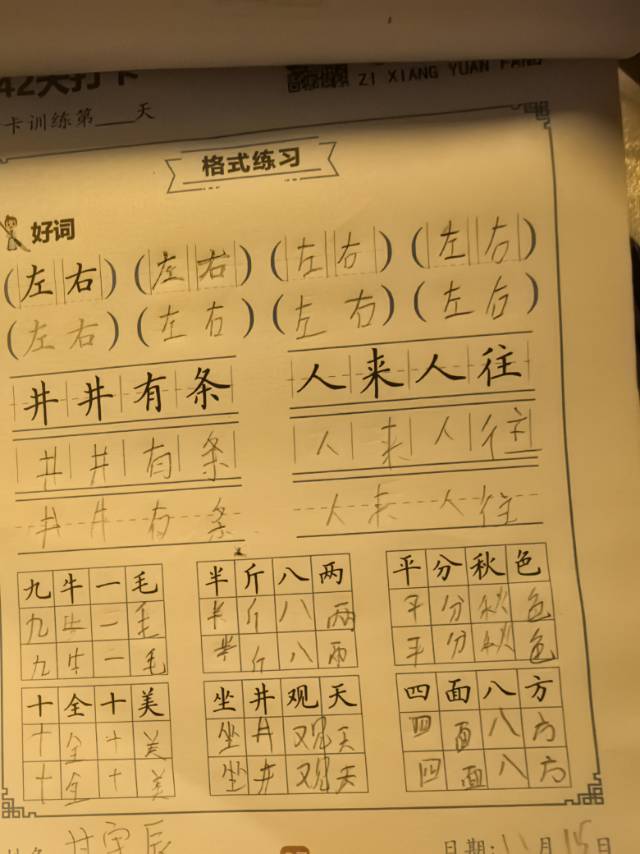 42天打卡
ZI XIANG YUAN FANG
卡训练第____天
格式练习
好词
(左右)(左右)(左右)(左右)
(左右)(左右)(左右)(左右)
井井有条 人来人往
井井有条 人来人往
井井有条 人来人往
九牛一毛 半斤八两 平分秋色
九牛一毛 半斤八两 平分秋色
九牛一毛 半斤八两 平分秋色
十全十美 坐井观天 四面八方
十全十美 坐井观天 四面八方
十全十美 坐井观天 四面八方
日期:11月15日